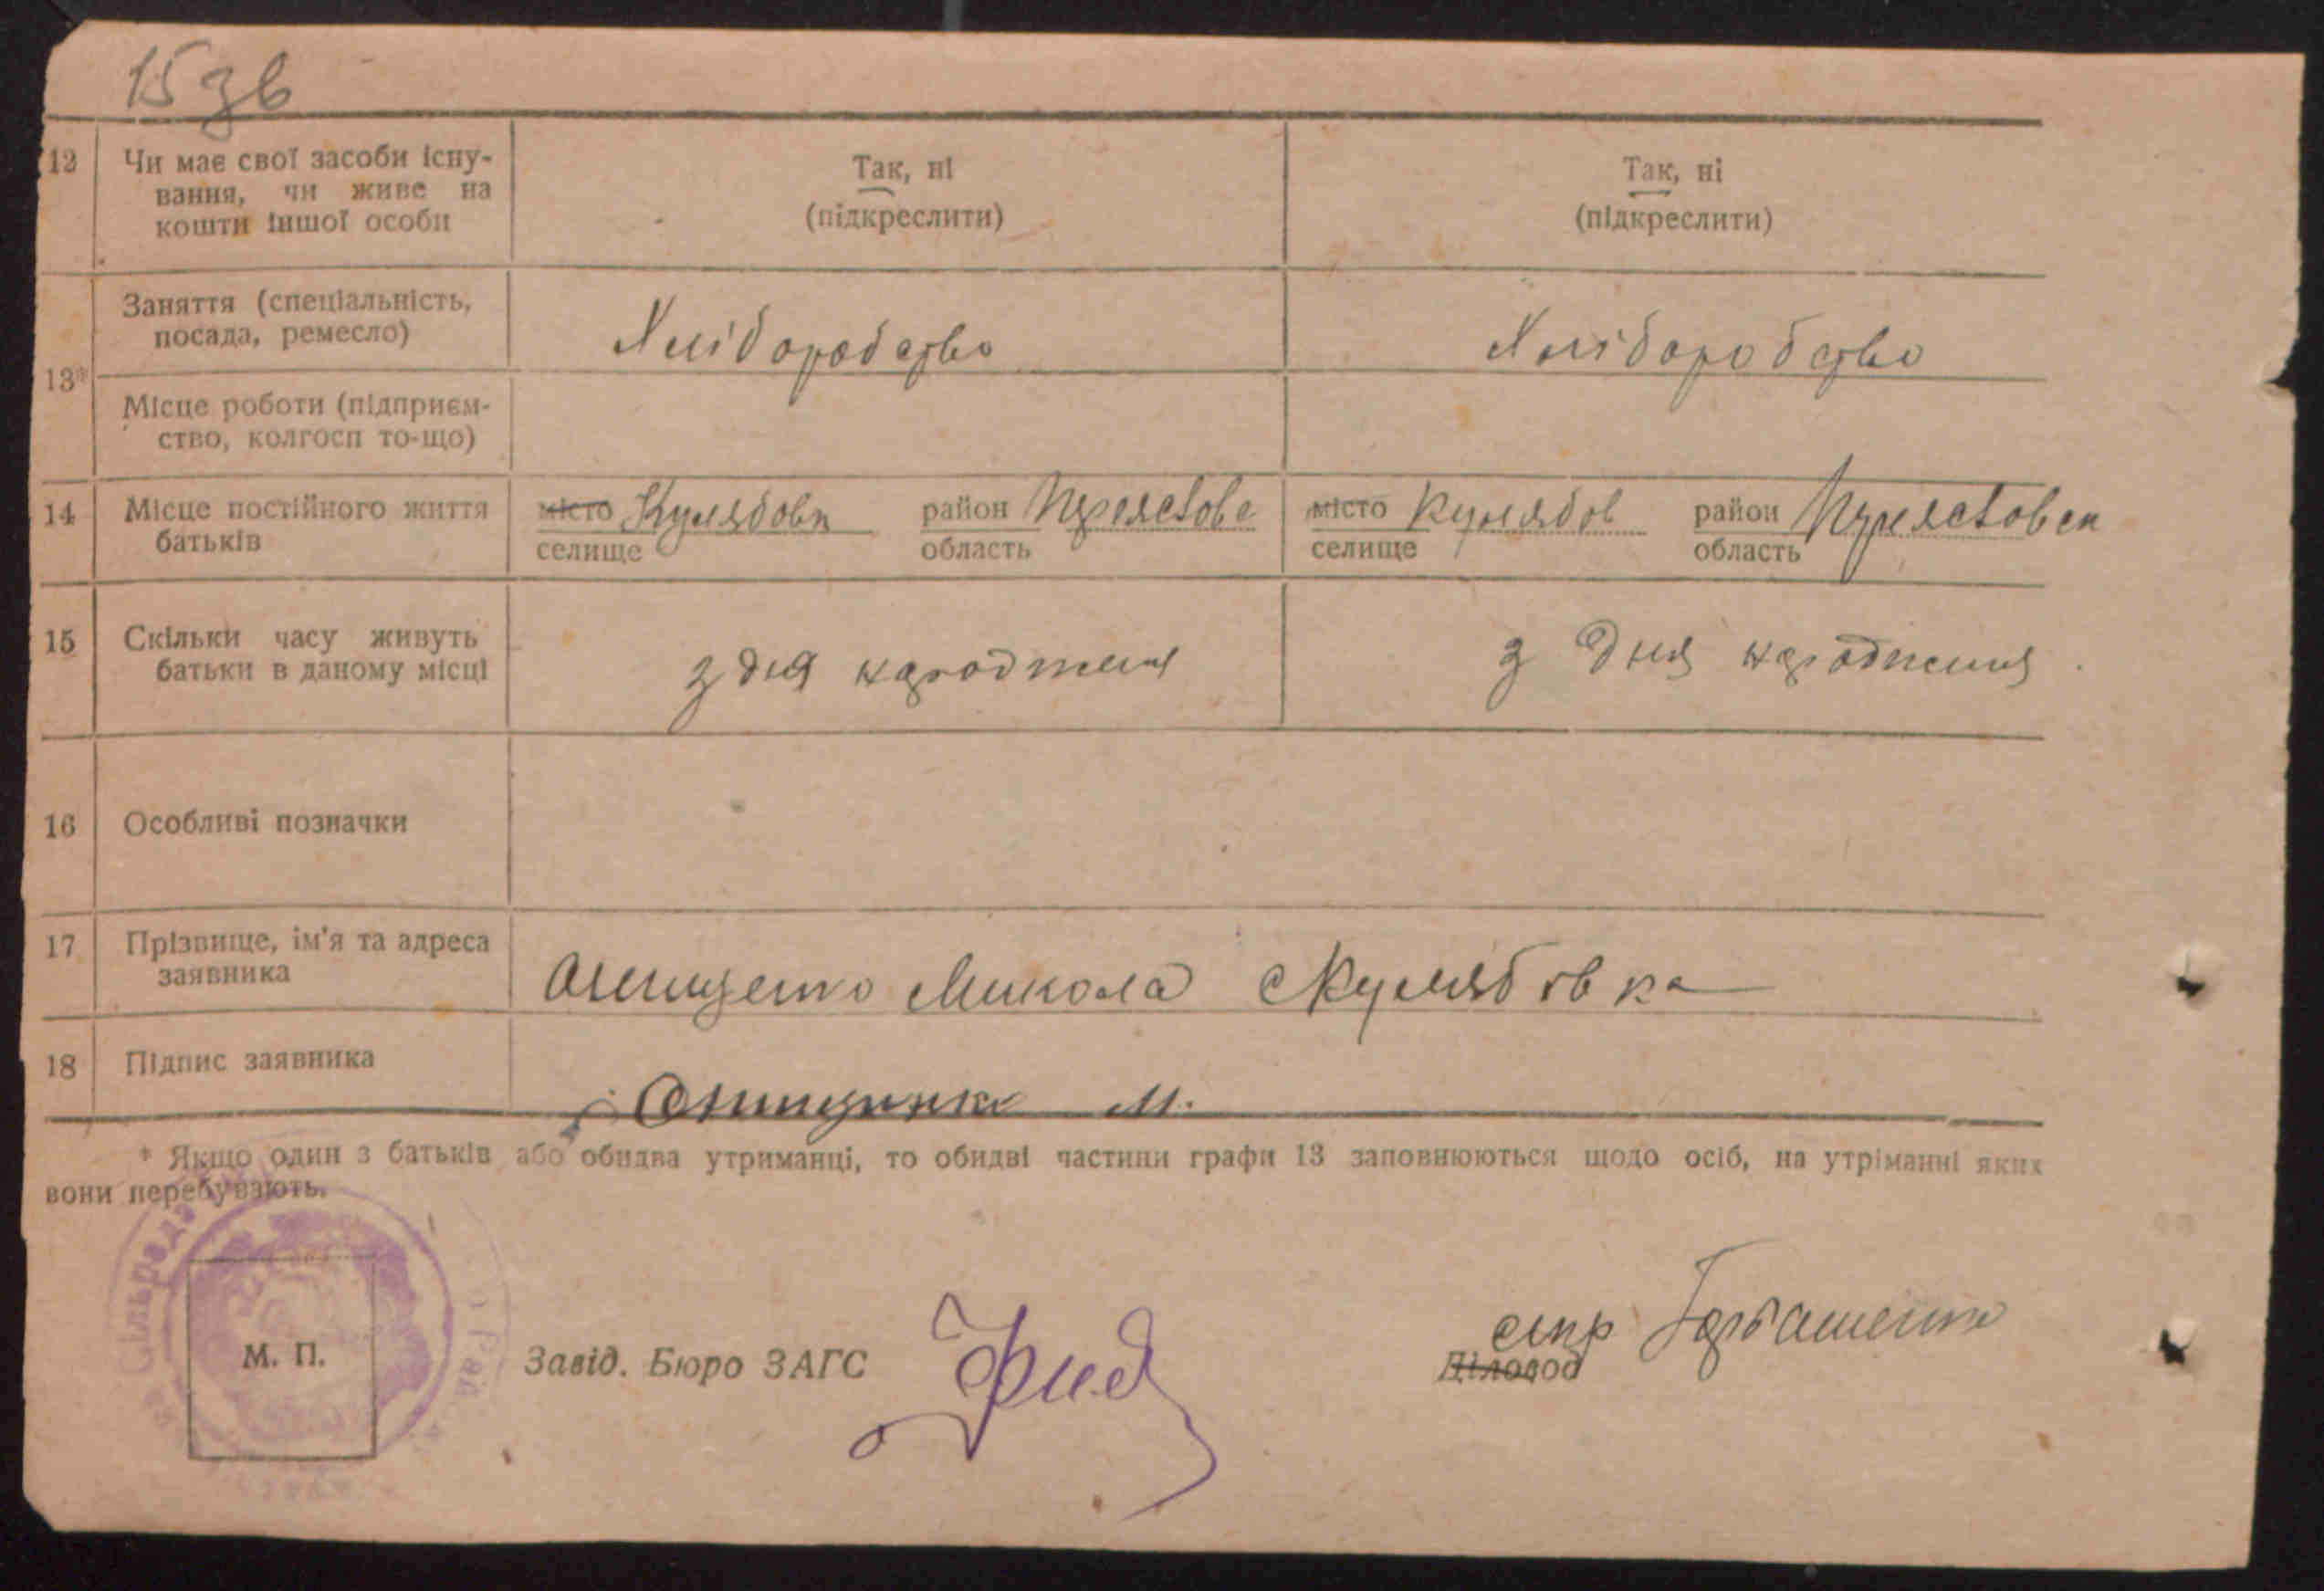 15 зв
12 Чи має свої засоби існу-
вання, чи живе на
кошти іншої особи
Так, ні
(підкреслити)
Так, ні
(підкреслити)
13*
Заняття (спеціальність,
посада, ремесло)
Хліборобство
Хліборобство
Місце роботи (підприєм-
ство, колгосп то-що)
14 Місце постійного життя
батьків
місто Кулябовк район
селище область
місто Кулябов район
селище область
15 Скільки часу живуть
батьки в даному місці
з дня народження
з дня народження
16 Особливі позначки
17 Прізвище, ім'я та адреса
заявника
Онищенко Микола с Кулябовка
18 Підпис заявника
Онищенко М.
* Якщо один з батьків або обидва утриманці, то обидві частини графи 13 заповнюються щодо осіб, на утріманні яких
вони перебувають.
Сільрада
М. П.
Завід. Бюро ЗАГС
Діловод